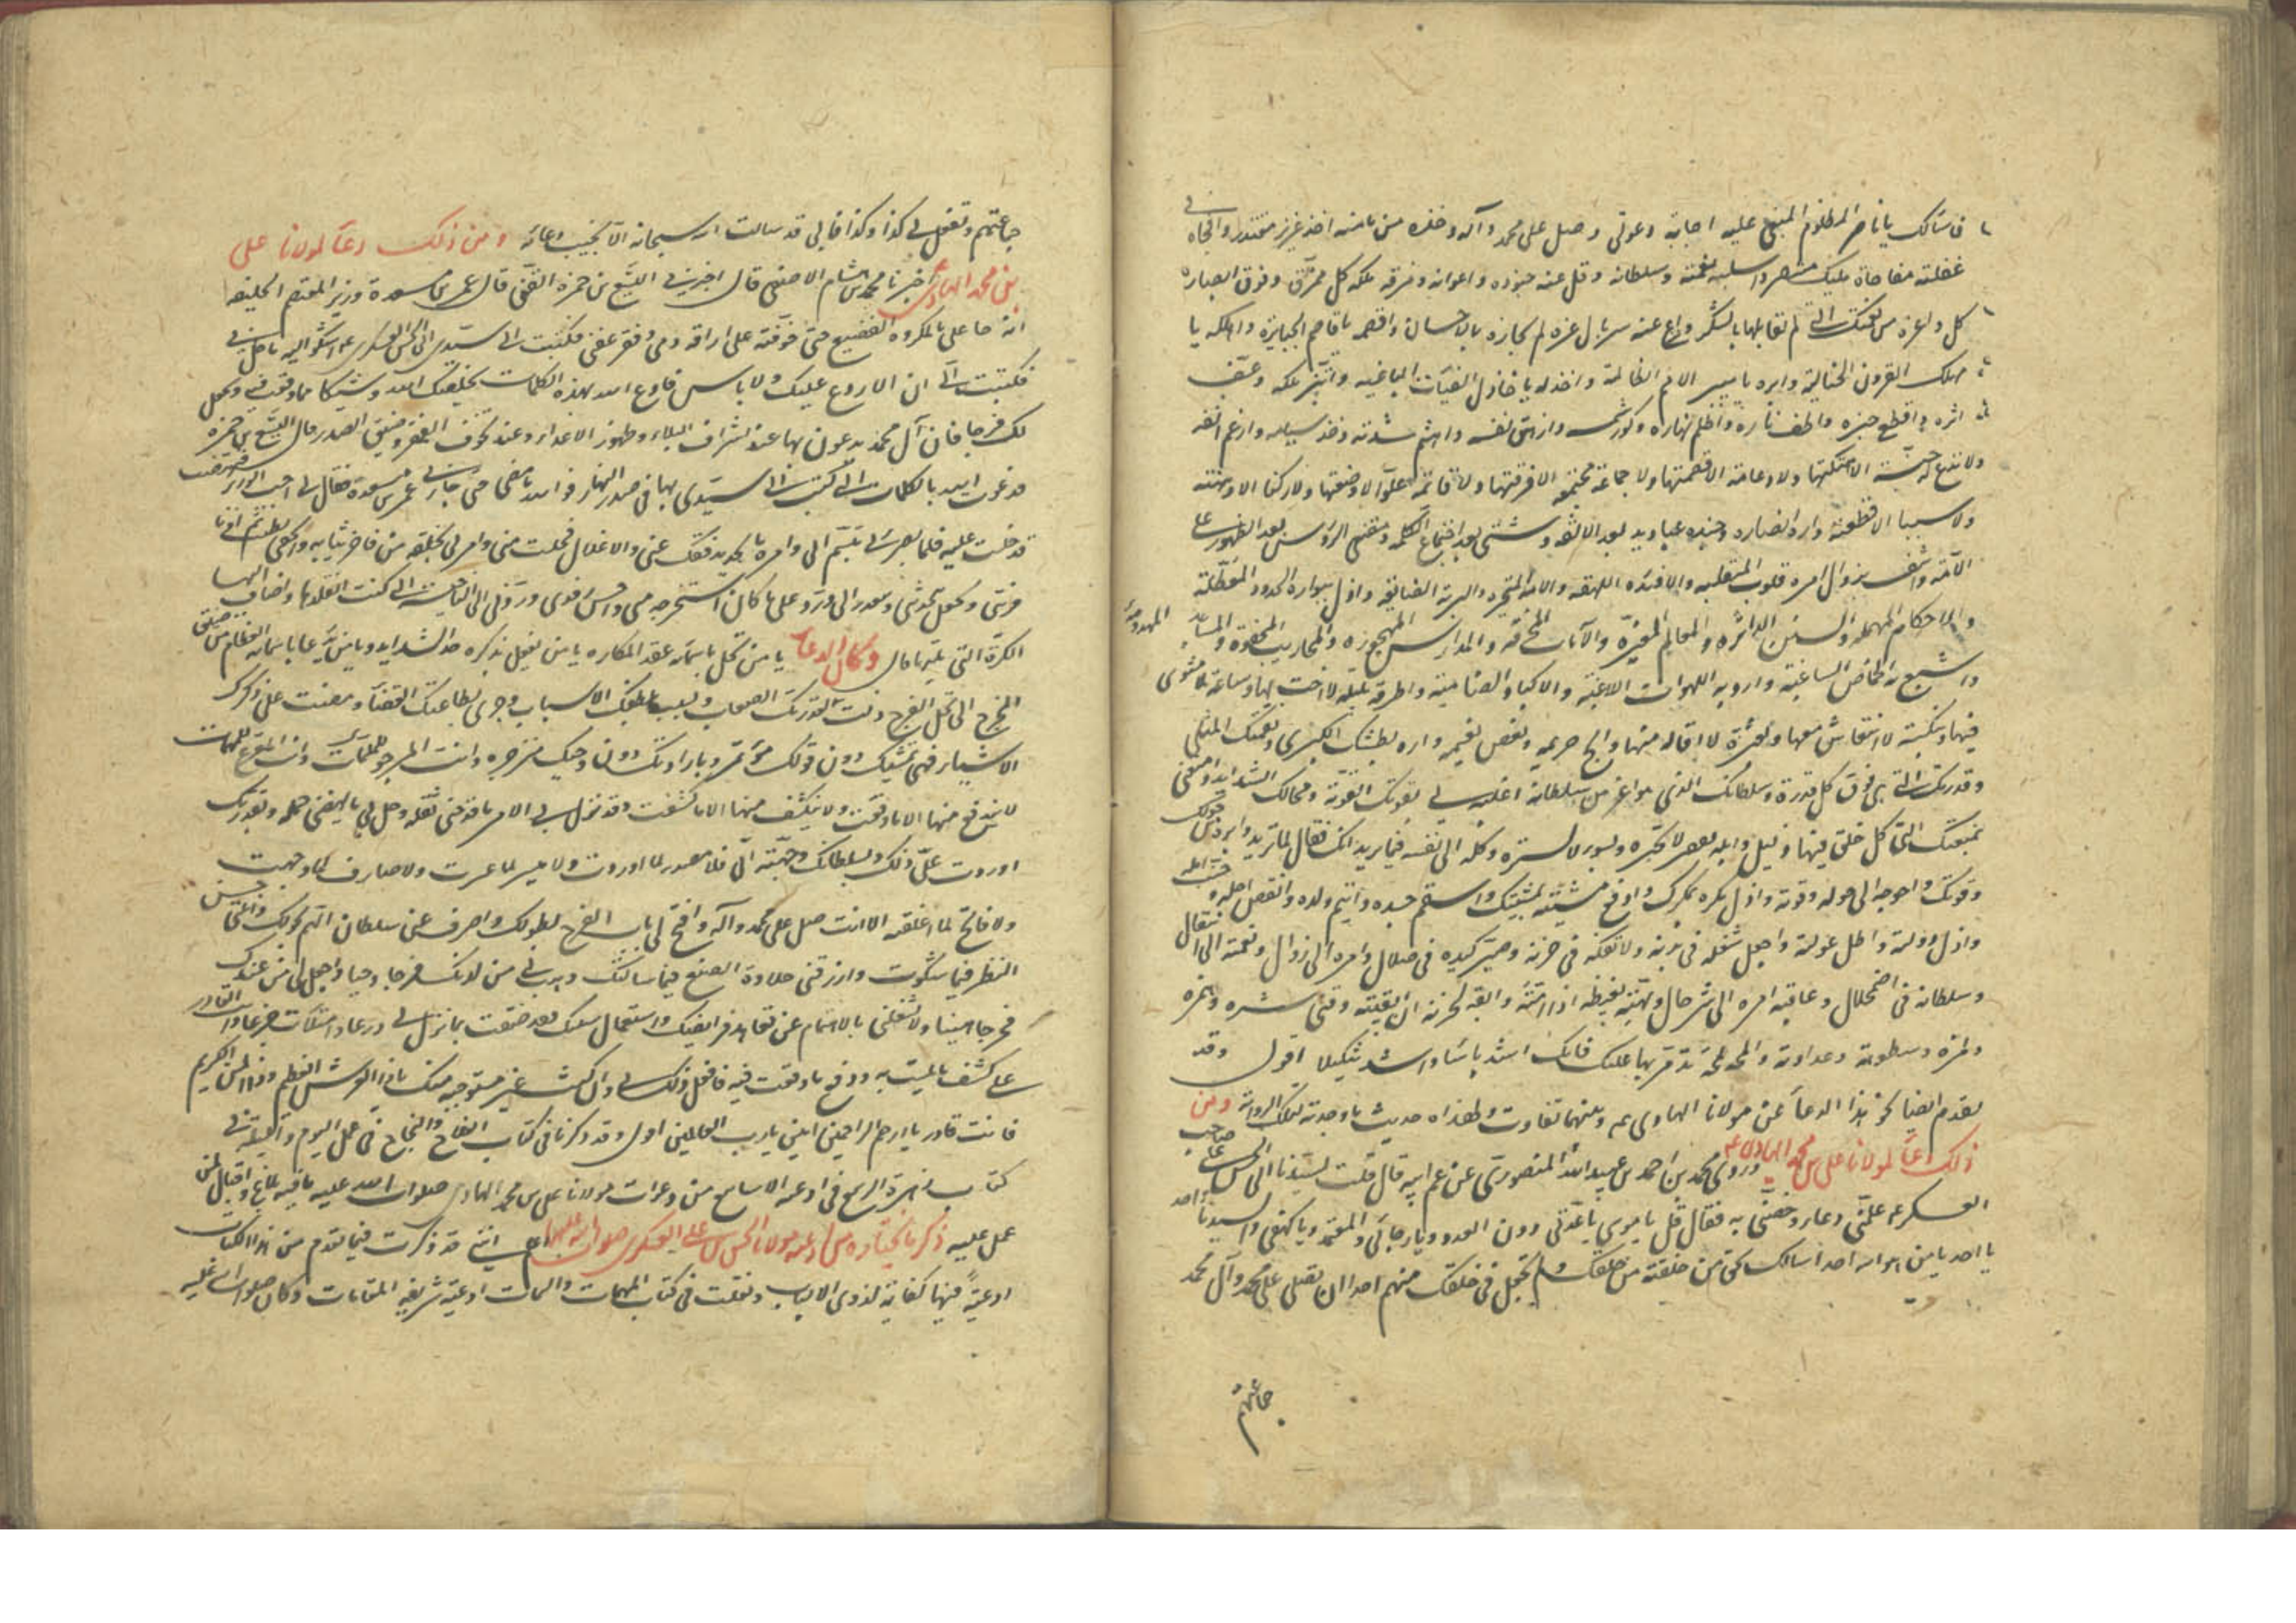 فاسالك يا ناصر المظلوم المبغي عليه اجابة دعوتي وصل على محمد وآله وخذه من مامنه اخذ عزيز مقتدر وافجاه في
غفلته مفاجاة مليك منتصر واسلبه نعمته وسلطانه وفل عنه جنوده واعوانه ومزق ملكه كل ممزق وفرق انصاره
كل واعره من نعمتك التي لم يقابلها بالشكر وانزع عنه سربال عزه لم يجازه بالاحسان واقصمه يا قاصم الجبابرة واهلكه يا
مهلك القرون الخالية وابره يا مبير الامم الظالمة واخذله يا خاذل الفئات الباغية وابتز ملكه وعف
اثره واقطع خبره واطف ناره واظلم نهاره وكور شمسه وازهق نفسه واهشم شدته وجذ سنامه وارغم انفه
ولا تدع له جنة الا هتكتها ولا دعامة الا قصمتها ولا جماعة مجتمعة الا فرقتها ولا قائمة علو الا وضعتها ولا ركنا الا وهنته
ولا سببا الا قطعته واره انصاره وجنده عباديد بعد الالفة وشتى بعد اجتماع الكلمة ومقنعي الرؤس بعد الظهور على
الامة واشف بزوال امره قلوب المنقلبة والافئدة اللهفة والامة المتحيرة والبرية الضائعة وادل ببواره الحدود المعطلة
والاحكام المهملة والسنن الداثرة والمعالم المغيرة والآيات المحرفة والمدارس المهجورة والمحاريب المجفوة والمساجد المهدومة
واشبع به الخماص الساغبة وارو به اللهوات اللاغبة والاكباد الظامئة واطرقه بليلة لا اخت لها وساعة لا مثوى
فيها وبنكبة لا انتعاش معها وبعثرة لا اقالة منها وابح حريمه ونغص نعيمه واره بطشك الكبرى ونقمتك المثلى
وقدرتك التي هي فوق كل قدرة وسلطانك الذي هو اعز من سلطانه اغلبه لي بقوتك القوية ومحالك الشديد وامنعني
بمنعتك التي كل خلق فيها ذليل وابله بفقر لا تجبره وبسوء لا تستره وكله الى نفسه فيما يريد انك فعال لما تريد وابره من حولك
وقوتك واحوجه الى حوله وقوته واذل مكره بمكرك وادفع مشيته بمشيتك واسقم جسده وايتم ولده وانقص اجله وخيب امله
وازل دولته واطل عولته واجعل شغله في بدنه ولا تفكه في حزنه وصير كيده في ضلال وامره الى زوال ونعمته الى انتقال
وسلطانه في اضمحلال وعاقبة امره الى شر حال وامته بغيظه اذا امته وابقه لحزنه ان ابقيته وقني شره وهمزه
ولمزه وسطوته وعداوته والمحه لمحة تدمر بها عليه فانك اشد باسا واشد تنكيلا اقول وقد
تقدم ايضا نحو هذا الدعاء عن مولانا الهادي عم وبينهما تفاوت ولهذا حديث ما وجدته لتلك الرواية ومن
ذلك دعاء لمولانا علي بن محمد الهادي عم وروى محمد بن احمد بن عبيد الله المنصوري عن عم ابيه قال قلت لسيدنا ابي الحسن علي صاحب
العسكر عم علمني دعاء وخصني به فقال قل يا نوري يا عدتي دون العدد ويا رجائي والمعتمد ويا كهفي والسند يا واحد
يا احد يا من هو الله احد اسالك بحق من خلقته من خلقك ولم تجعل في خلقك منهم احدا ان تصلي على محمد وآل محمد
جماعتهم
جماعتهم وتفعل لي كذا وكذا فاني قد سالت الله سبحانه الا يخيب دعائه ومن ذلك دعاء لمولانا علي
بن محمد الهادي عم اخبرنا محمد بن هشام الاصفهي قال اخبرني اليسع بن حمزة القمي قال عمر بن مسعدة وزير المعتصم الخليفة
انه جا علي بالمكروه الفظيع حتى خوفته على اراقة دمي وفقر عقبي فكتبت الى سيدي ابي الحسن العسكري عم اشكو اليه ما حل بي
فكتب الي ان لا روع عليك ولا باس فادع الله بهذه الكلمات يخلصك الله وشيكا مما وقعت فيه ويجعل
لك فرجا فان آل محمد يدعون بها عند اشراف البلاء وظهور الاعداء وعند تخوف الفقر وضيق الصدر قال اليسع بن حمزة
فدعوت الله بالكلمات التي كتب الي سيدي بها في صدر النهار فوالله ما مضى حتى جاءني عمر بن مسعدة فقال لي اجب الوزير فنهضت
فدخلت عليه فلما بصر بي تبسم الي وامر بالحديد ففك عني والاغلال فحلت مني وامر لي بخلعة من فاخر ثيابه واتحفني بطيب ثم ادناني
وقربني وجعل يحدثني ويعتذر الي ورد علي ما كان استخرجه مني واحسن رفدي وردني الى الناحية التي كنت اتقلدها واضاف اليها
الكورة التي تليها قال وكان الدعاء يا من تحل باسمائه عقد المكاره يا من يفل بذكره حد الشدايد ويا من يدعا باسمائه العظام من ضيق
المخرج الى محل الفرج ذلت لقدرتك الصعاب وتسببت بلطفك الاسباب وجرى بطاعتك القضاء ومضت على ذكرك
الاشياء فهي بمشيتك دون قولك مؤتمرة وبارادتك دون وحيك منزجره وانت المرجو للملمات وانت المفزع للمهمات
لا يندفع منها الا ما دفعت ولا ينكشف منها الا ما كشفت وقد نزل بي الامر ما فدحني ثقله وحل بي ما بهضني حمله وبقدرتك
اوردت علي ذلك وبسلطانك وجهته الي فلا مصدر لما اوردت ولا ميسر لما عسرت ولا صارف لما وجهت
ولا فاتح لما اغلقت الا انت صل على محمد وآله وافتح لي باب الفرج بطولك واصرف عني سلطان الهم بحولك وانلني حسن
النظر فيما شكوت وارزقني حلاوة الصنع فيما سالتك وهب لي من لدنك فرجا وحيا واجعل لي من عندك
مخرجا هنيئا ولا تشغلني بالاهتمام عن تعاهد فرايضك واستعمال سنتك فقد ضقت بما نزل بي ذرعا وامتلات جزعا وانت القادر
على كشف ما بليت به ودفع ما وقعت فيه فافعل ذلك بي وان كنت غير مستوجبه منك يا ذا العرش العظيم وذا المن الكريم
فانت قادر يا ارحم الراحمين امين يا رب العالمين اقول وقد ذكرنا في كتاب الفلاح والنجاح في عمل اليوم والليلة في
كتاب زهرة الربيع في ادعية الاسابيع من دعوات مولانا علي بن محمد الهادي صلوات الله عليه ما فيه بلاغ واقبال لمن
عمل عليه ذكر ما نختاره من ادعية مولانا الحسن بن علي العسكري صلوات الله عليهما انني قد ذكرت فيما تقدم من هذا الكتاب
ادعية فيها كفاية لذوي الالباب ونقلت في كتاب المهمات والتتمات ادعية شريفة المقامات وكان صلوات الله عليه